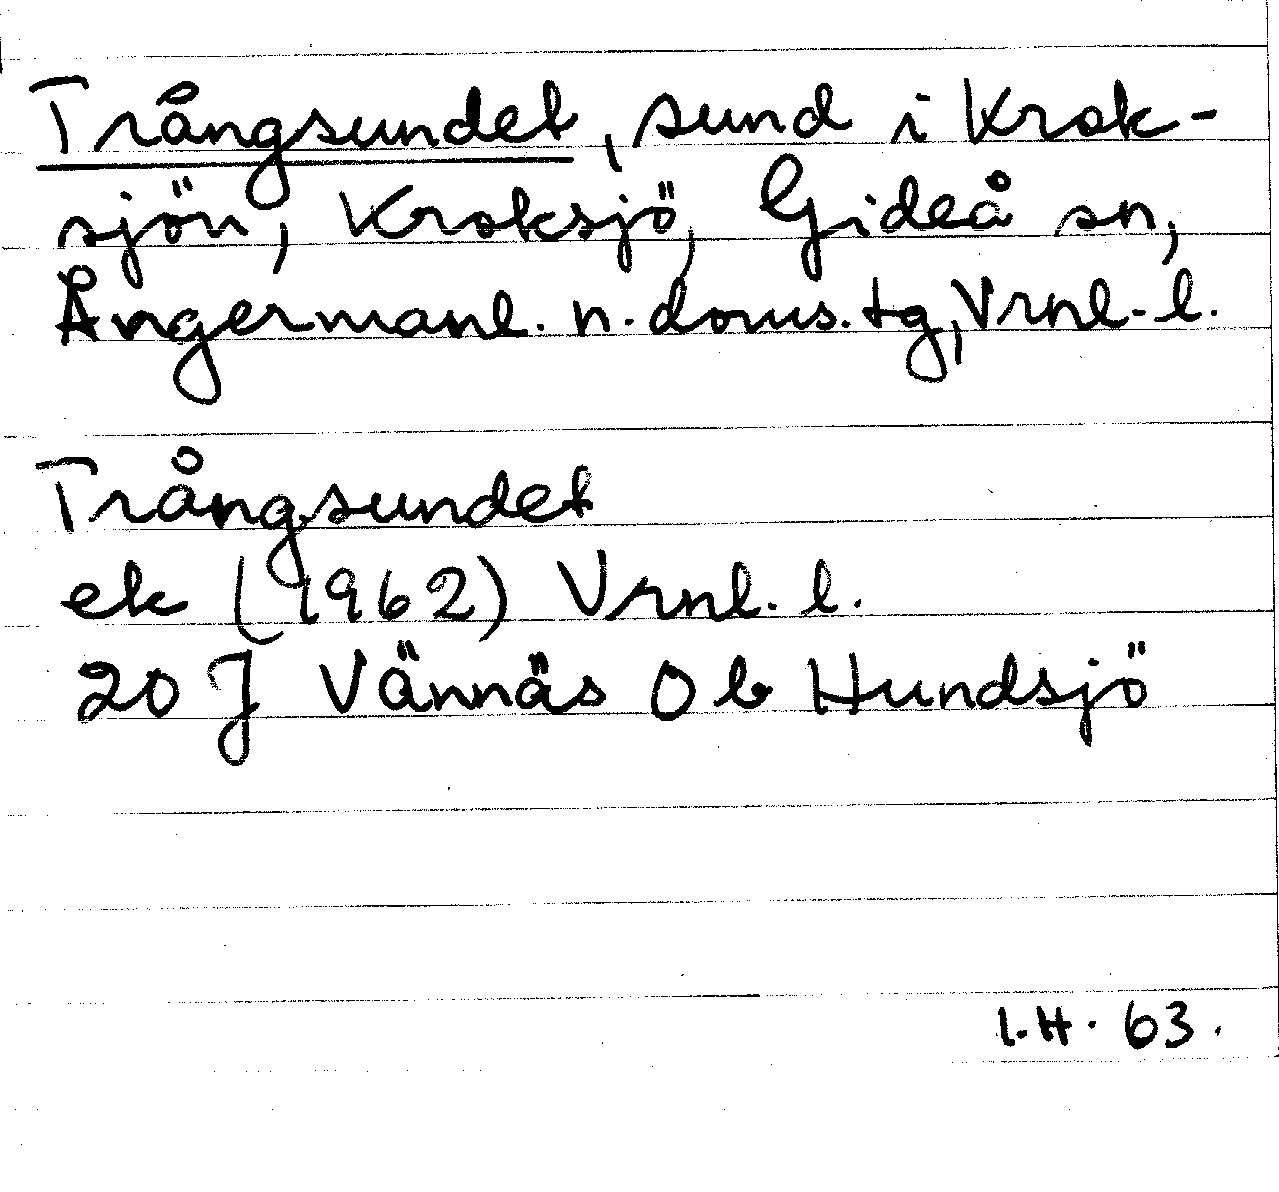 Trångsundet, sund i Krok-
sjön, Kroksjö, Gideå sn,
Ångermanl. n. doms. tg, Vrnl. l.
Trångsundet
ek (1962) Vrnl. l.
20 J Vännäs 0 b Hundsjö
I.H. 63.